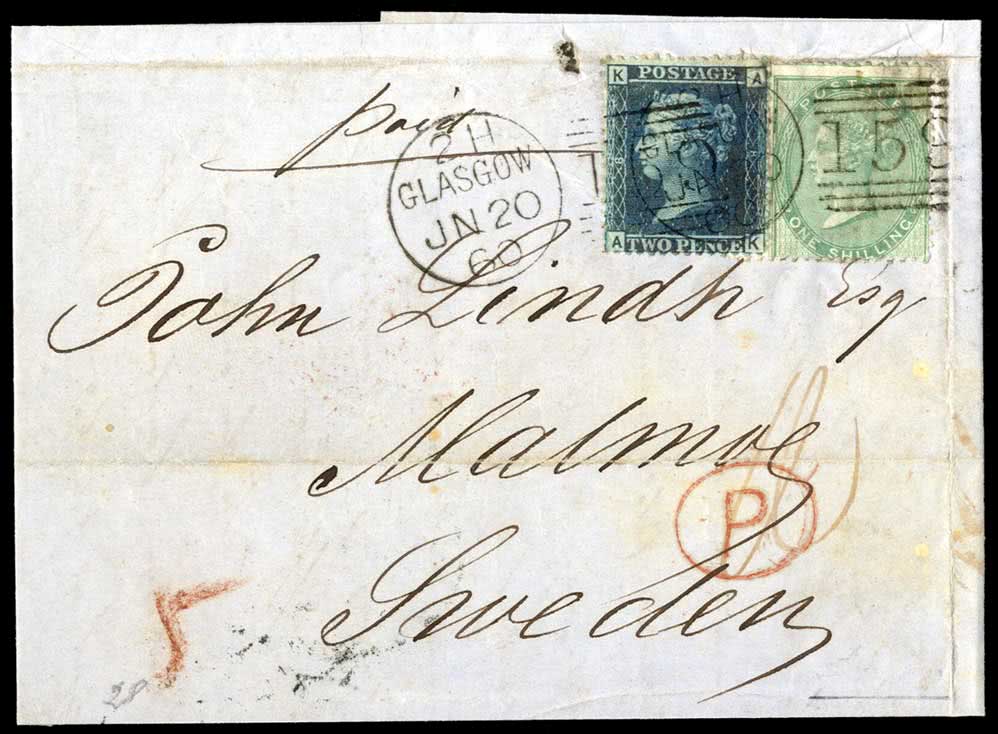 paid
2 H
GLASGOW
JN 20
60
K POSTAGE A
A TWO PENCE K
POSTAGE
159
ONE SHILLING
John Lindh Esq
Malmoe
P
Sweden
5
28